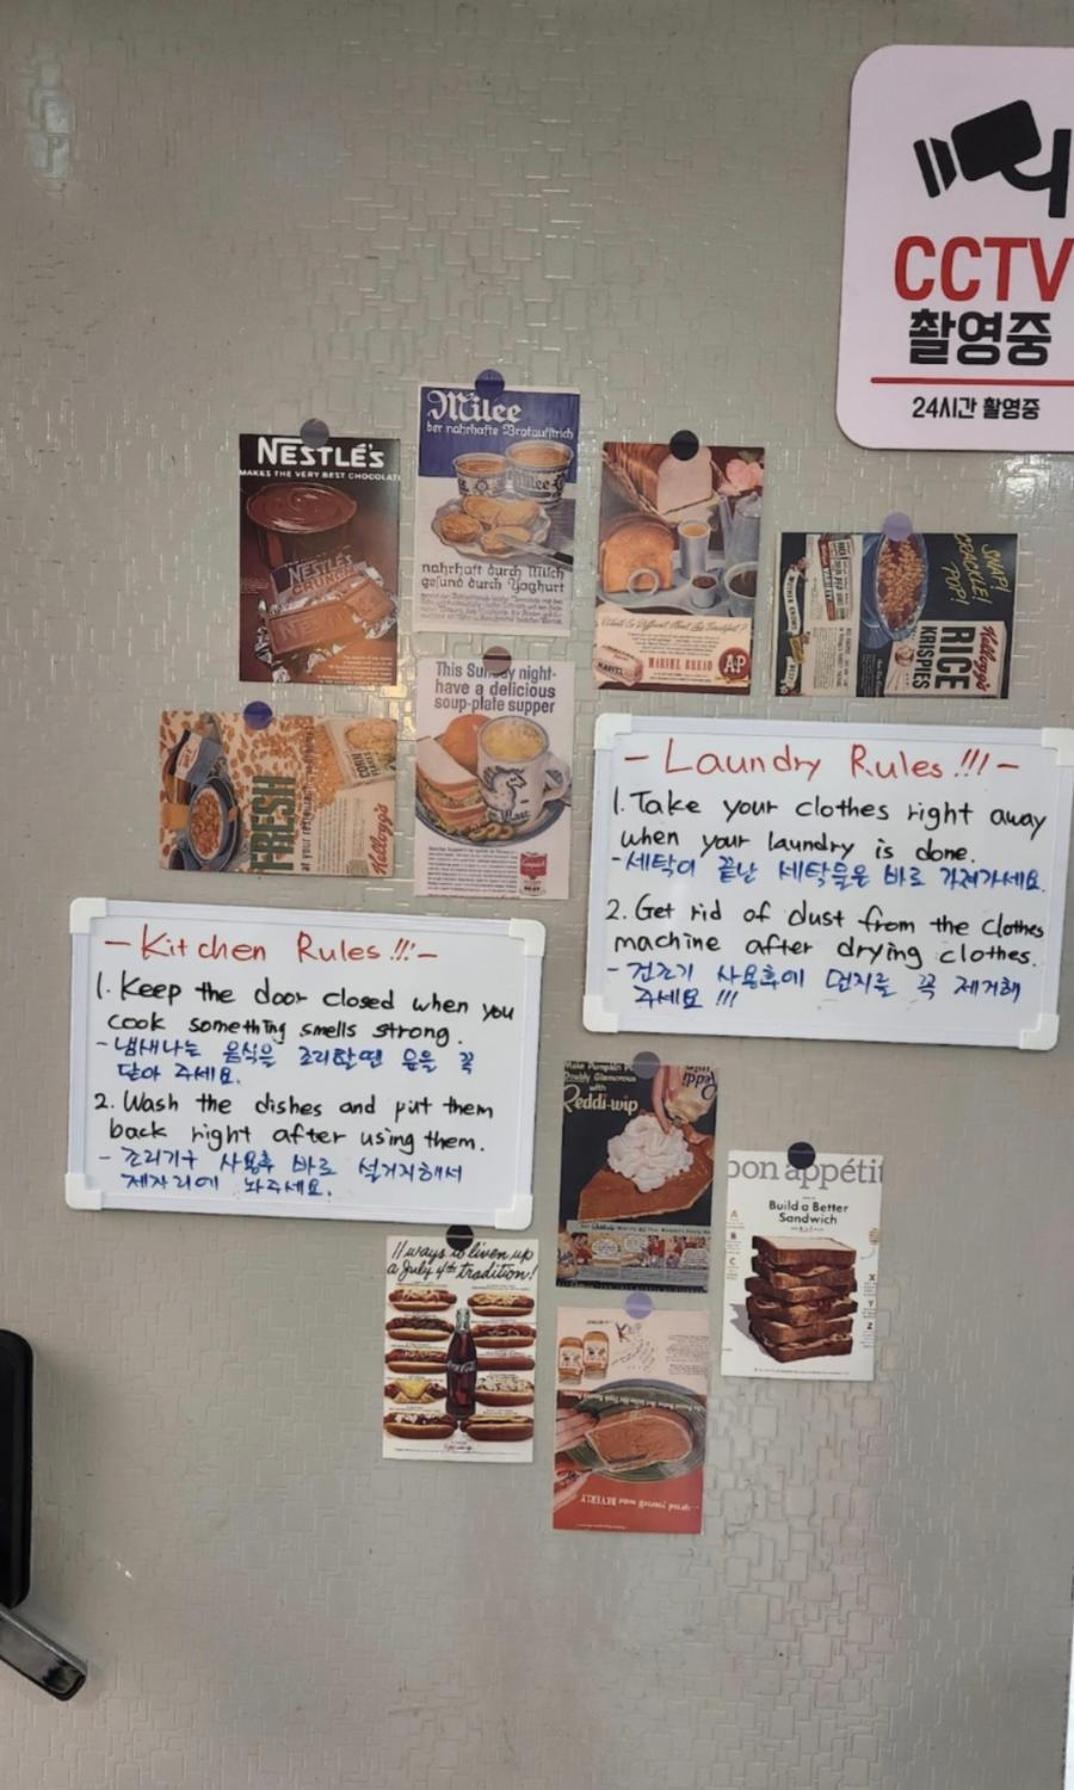 CCTV
촬영중
24시간 촬영중
Milee
der nahrhafte Brotaufstrich
nahrhaft durch Milch
gesund durch Yoghurt
NESTLÉ'S
MAKES THE VERY BEST CHOCOLATE
NESTLÉ'S
CRUNCH
MARVEL BREAD
A&P
SNAP!
CRACKLE!
POP!
Kellogg's
RICE
KRISPIES
This Sunday night-
have a delicious
soup-plate supper
FRESH
CORN
Kellogg's
- Laundry Rules !!! -
1. Take your clothes right away
when your laundry is done.
- 세탁이 끝난 세탁물은 바로 가져가세요.
2. Get rid of dust from the clothes
machine after drying clothes.
- 건조기 사용후에 먼지를 꼭 제거해
주세요 !!!
- Kitchen Rules !!! -
1. Keep the door closed when you
cook something smells strong.
- 냄새나는 음식을 조리할땐 문을 꼭
닫아 주세요.
2. Wash the dishes and put them
back right after using them.
- 조리기구 사용후 바로 설거지해서
제자리에 놔주세요.
Make Pumpkin
Doubly Glamorous
with
Reddi-wip
bon appétit
Build a Better
Sandwich
A
B
C
X
Y
Z
11 ways to liven up
a July 4th tradition!
Coca-Cola